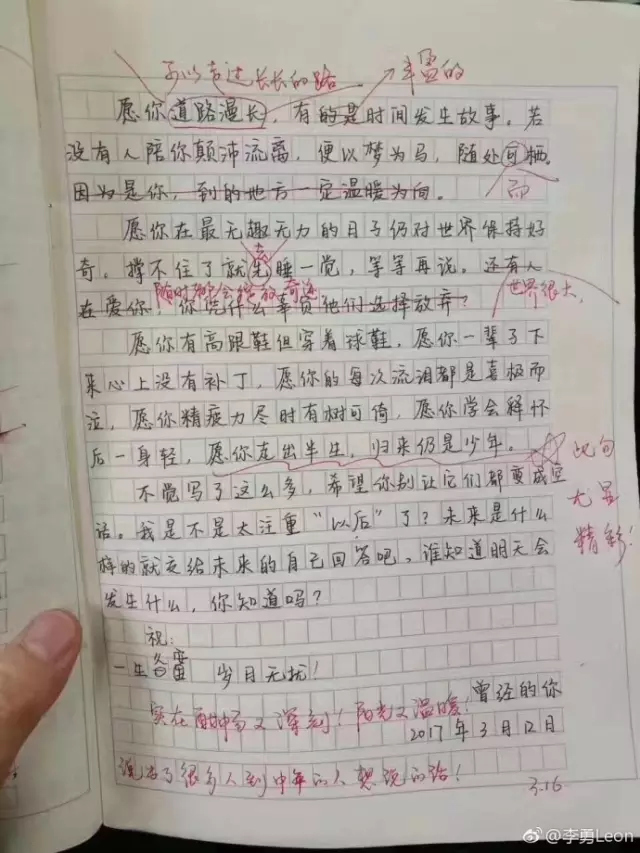 可以走过长长的路 丰富的
愿你道路漫长，有的是时间发生故事。若
没有人陪你颠沛流离，便以梦为马，随处可栖。
因为是你，到的地方一定温暖为向。 而
愿你在最无趣无力的日子仍对世界保持好
奇。撑不住了就先睡一觉，等等再说。还有人
去
随时都会绽放奇迹 世界很大，
在爱你！你凭什么辜负他们选择放弃？
愿你有高跟鞋但穿着球鞋，愿你一辈子下
来心上没有补丁，愿你的每次流泪都是喜极而
泣，愿你精疲力尽时有树可倚，愿你学会释怀
后一身轻，愿你走出半生，归来仍是少年。 此句
不觉写了这么多，希望你别让它们都变成空 尤显
话。我是不是太注重“以后”了？未来是什么 精彩！
样的就交给未来的自己回答吧，谁知道明天会
发生什么，你知道吗？
祝：
一生备蕾 岁月无扰！
曾经的你
实在 又深刻！阳光又温暖！
2017年3月12日
说出了很多人到中年的人想说的话！
3.16
@李勇Leon